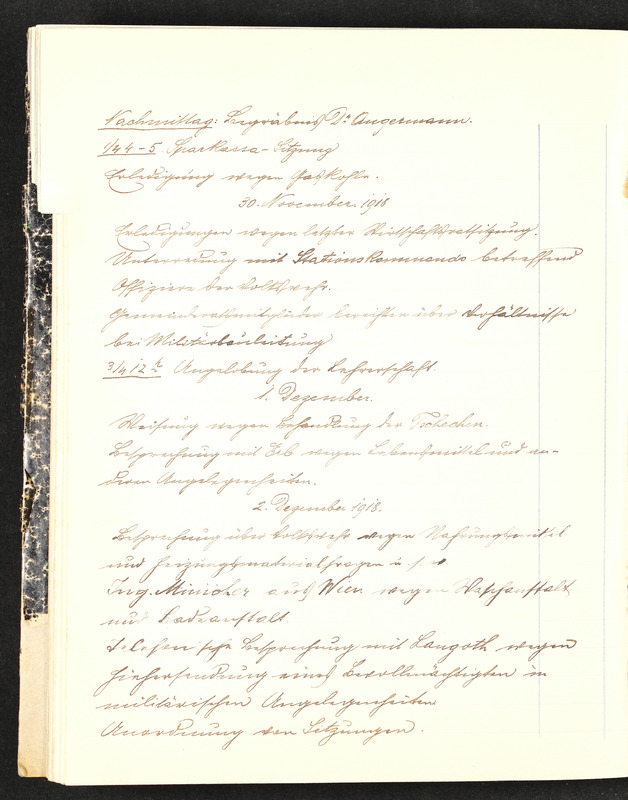 Nachmittag: Begräbnis Dr Angermann.
1/4 4 - 5 Sparkassa-Sitzung
Erledigung wegen Gaskohle.
30. November 1918
Erledigungen wegen letzter Wirtschaftsratsitzung.
Unterredung mit Stationskommando betreffend
Offiziere der Volkswehr.
Gemeinderatsmitglieder berichten über Verhältnisse
bei Militärbauleitung
3/4 12 h Angelobung der Lehrerschaft.
1. Dezember.
Weisung wegen Behandlung der Tschechen.
Besprechung mit wegen Lebensmittel und an-
deren Angelegenheiten.
2. Dezember 1918.
Besprechung über Volkswehr wegen Nahrungsmittel
und Heizungsmaterialfragen u. s. w
Ing. aus Wien wegen Waschanstalt
und Badeanstalt.
Telefonische Besprechung mit Langoth wegen
Hiehersendung eines Bevollmächtigten in
militärischen Angelegenheiten
Anordnung von Sitzungen.